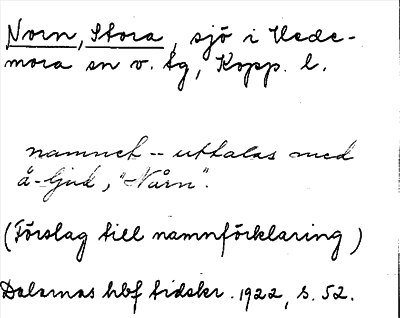 Norn, Stora, sjö i Hede-
mora sn v. tg, Kopp. l.
namnet -- uttalas med
å-ljud, "Nårn".
(Förslag till namnförklaring)
Dalarnas hbf tidskr. 1922, s. 52.